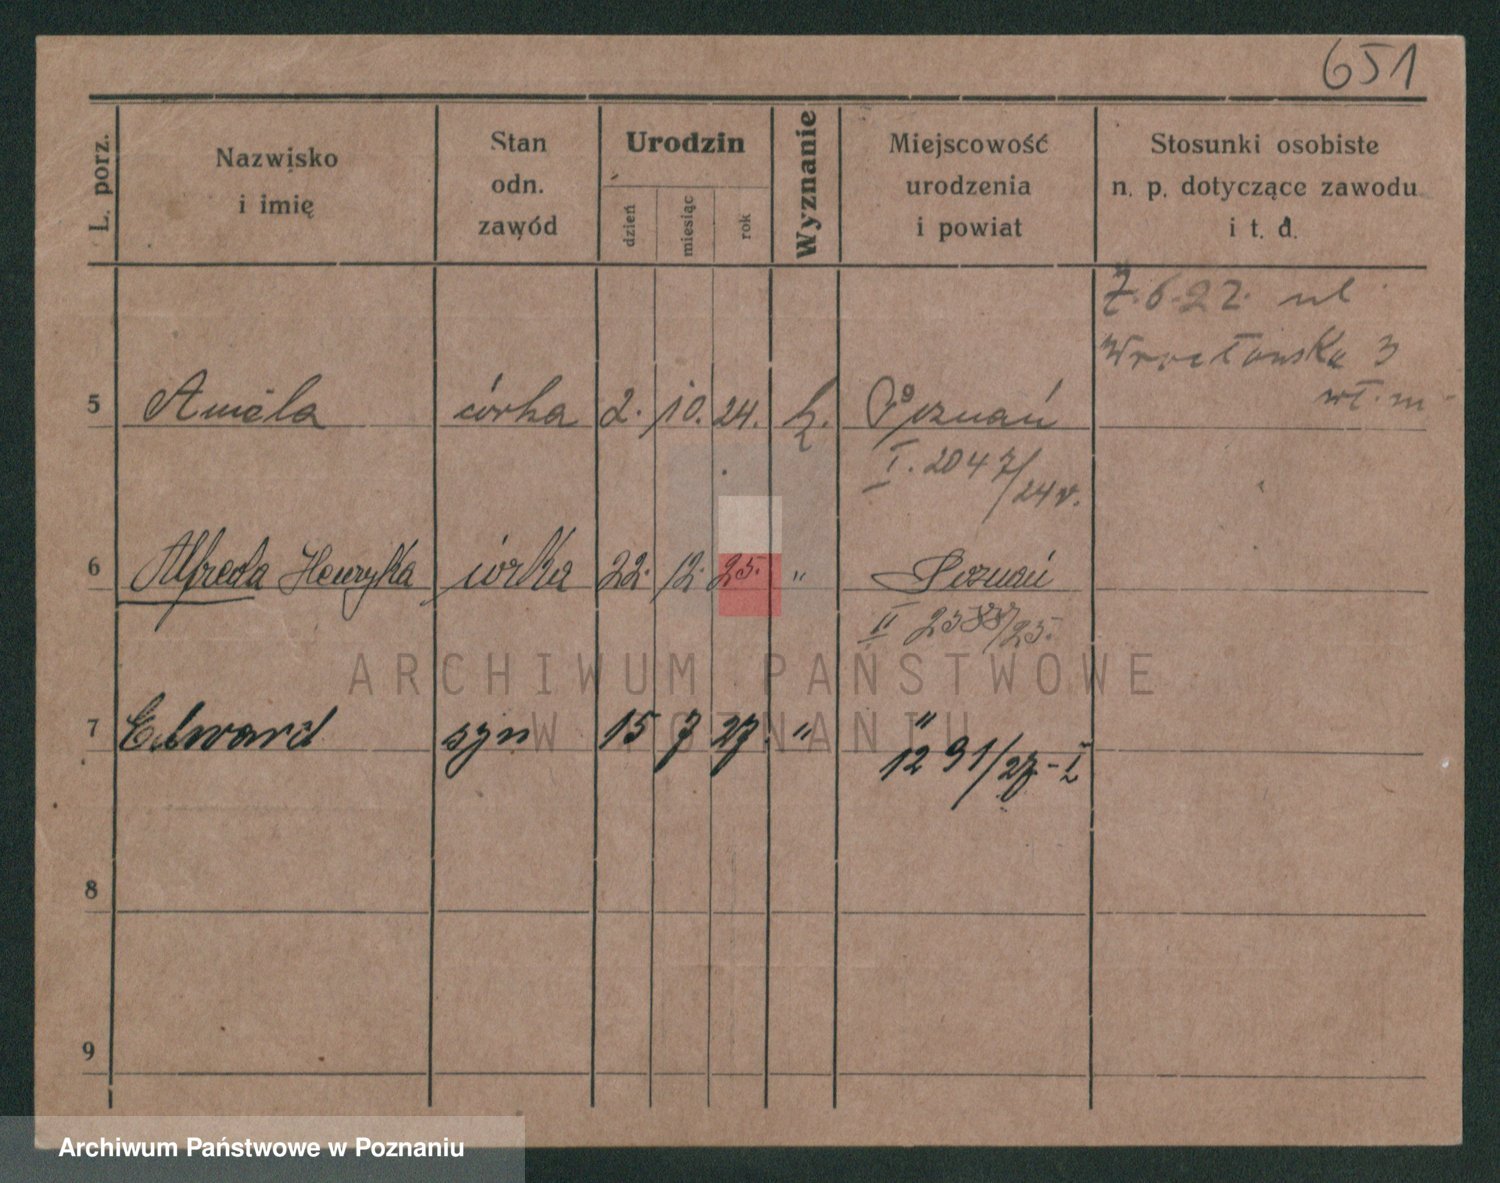 651
L. porz.
Nazwisko
i imię
Stan
odn.
zawód
Urodzin
dzień
miesiąc
rok
Wyznanie
Miejscowość
urodzenia
i powiat
Stosunki osobiste
n. p. dotyczące zawodu
i t. d.
7.6.27. ul
Wrocławska 3
wł. m.
5 Aniela córka 2. 10. 24. k. Poznań
I. 2047/24 r.
6 Alfreda Henryka córka 22. 12. 25. " Poznań
II /25.
ARCHIWUM PAŃSTWOWE
W POZNANIU
7 Edward syn 15 7 27. " "
1291/27-I
8
9
Archiwum Państwowe w Poznaniu